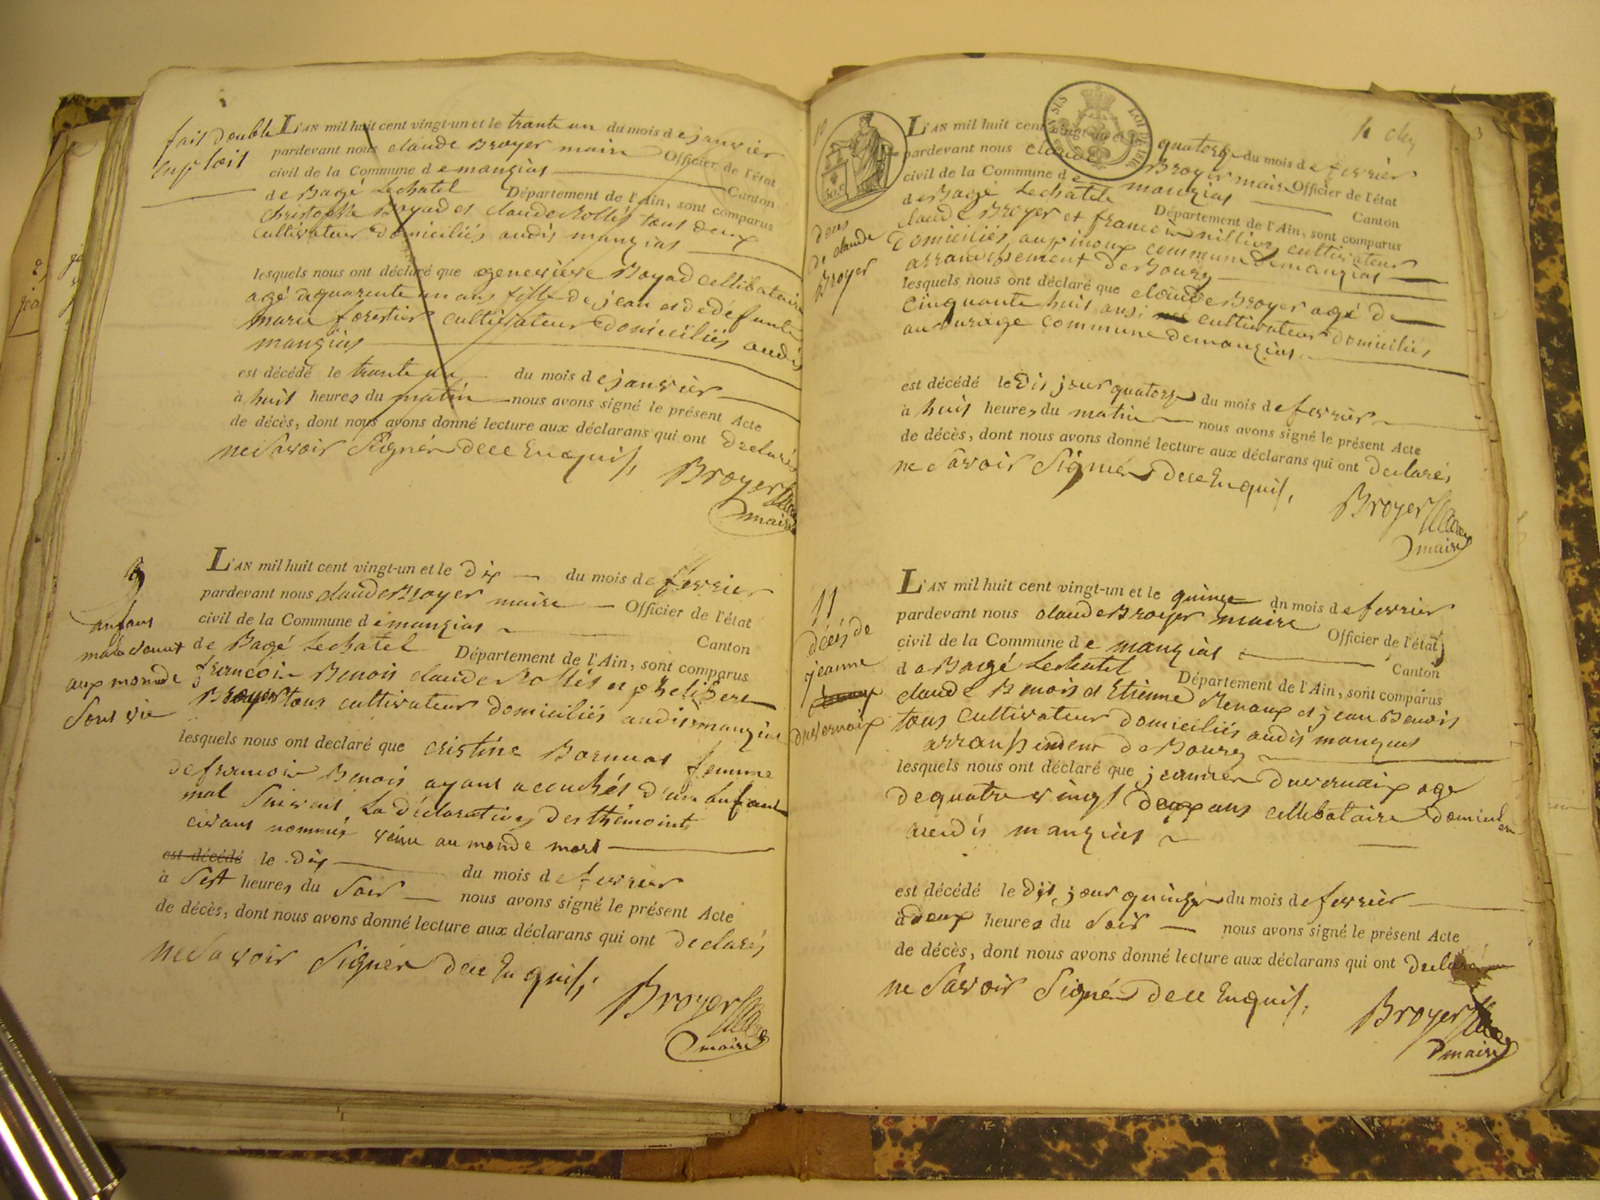 fait double
L'AN mil huit cent vingt-un et le trante un du mois de janvier
pardevant nous claude Broyer maire Officier de l'état
civil de la Commune de manziat Canton
de Bagé Lechatel Département de l'Ain, sont comparus
Christophe Boyad et claude Rollet tous deux
cultivateur domiciliés audis manziat
lesquels nous ont déclaré que genevieve Boyad cellibataire
agé de quarente un ans fille de jean et de défunte
marie forestier cultivateur domiciliés audis
manziat
est décédé le trante un du mois de janvier
à huit heures du matin nous avons signé le présent Acte
de décès, dont nous avons donné lecture aux déclarans qui ont declarés
ne Savoir Signér de ce Enquis,
Broyer
maire
9
enfans
mal venut
aux monde
Sans vie
L'AN mil huit cent vingt-un et le dix du mois de fevrier
pardevant nous claude Broyer maire Officier de l'état
civil de la Commune de manziat Canton
de Bagé Lechatel Département de l'Ain, sont comparus
francois Benois claude Rollet et phelibere
Broyer tous cultivateur domiciliés audis manziat
lesquels nous ont declaré que cristine Bornuat femme
de francois Benois ayans accouchés d'un Enfant
mal Suivant La déclaration des thémoint
civans nommés vénu au monde mort
est décédé le dix du mois de fevrier
à Sept heures du Soir nous avons signé le présent Acte
de décès, dont nous avons donné lecture aux déclarans qui ont declarés
ne Savoir Signér de ce Enquis,
Broyer
maire
10
deces
de claude
Broyer
L'AN mil huit cent vingt-un et le quatorze du mois de fevrier
pardevant nous claude Broyer maire Officier de l'état
civil de la Commune de manziat Canton
de Bagé Lechatele Département de l'Ain, sont comparus
claude Broyer et francois cultivateur
Domiciliés commune de manziat
arrandissement de Bourg
lesquels nous ont déclaré que claude Broyer agé de
Cinquante huit ans cultivateur domiciliés
commune de manziat
est décédé le Dis jour quatorze du mois de fevrier
à huit heures du matin nous avons signé le présent Acte
de décès, dont nous avons donné lecture aux déclarans qui ont declarés
ne Savoir Signér de ce Enquis,
Broyer
maire
11
décés de
jeanne
duvernaix
L'AN mil huit cent vingt-un et le quinze du mois de fevrier
pardevant nous claude Broyer maire Officier de l'état
civil de la Commune de manziat Canton
de Bagé Lechatel Département de l'Ain, sont comparus
claude Benois et Etienne Renaux et jean Benois
tous cultivateur domiciliés audis manziat
de Bourg
lesquels nous ont déclaré que jeanne duvernaix age
de quatre vingt deux ans cellibataire
audis manziat
est décédé le Dis jour quinze du mois de fevrier
à deux heures du Soir nous avons signé le présent Acte
de décès, dont nous avons donné lecture aux déclarans qui ont declaré
ne Savoir Signér de ce Enquis,
Broyer
maire